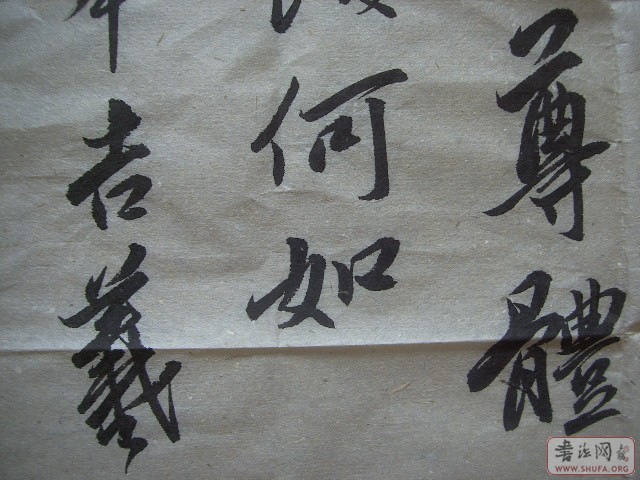 尊體
何如
吉羲
书法网
WWW.SHUFA.ORG